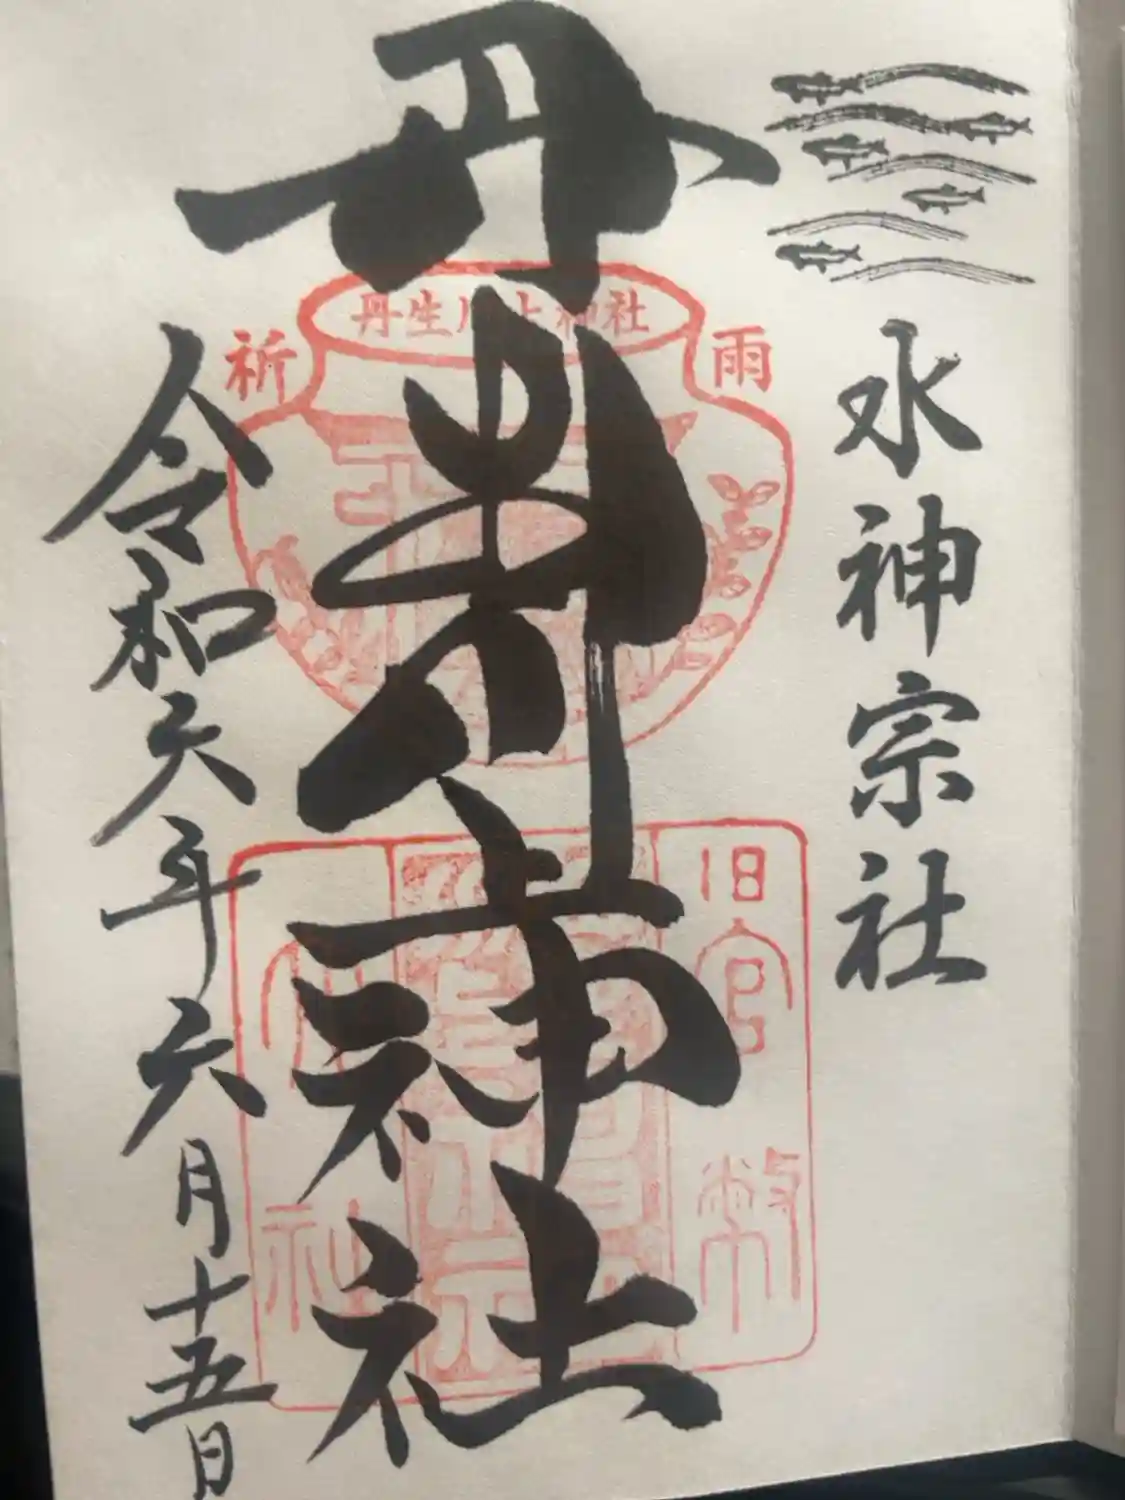 水神宗社
丹生川上神社
令和六年六月十五日
丹生川上神社
雨
祈
旧官幣
大社